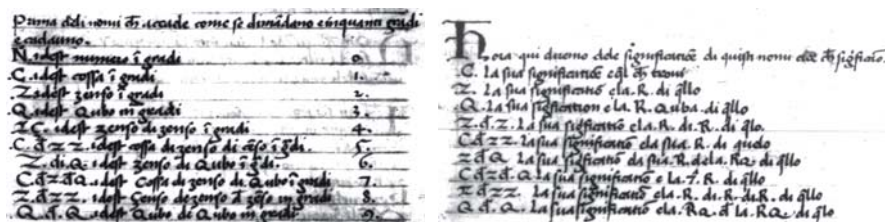 Prima deli nomi ch accade come se dimādano e in quanti gradi
e cadauno.
N. idest numero ī gradi 0.
.C. idest cossa ī gradi 1.
.Z. idest zenso ī gradi 2.
.Q. idest Qubo in gradi 3.
.Z Z. idest zenso di zenso ī gradi 4.
.C. d z z. idest cossa di zenso di cēso ī g̅di. 5.
.Z. di Q. idest zenso di Qubo ī g̅di. 6.
C d z d Q. idest Cossa di zenso di Qubo ī gradi 7.
Z. d z z. idest Censo de zenso d zēso in gradi 8.
Q. d. Q. idest Qubo de Qubo in gradi 9.
Hora qui diremo dele significatiōe di quisti nomi
.C. La sua significatiōe e q̄l ch trovi
.Z. La sua significatiōe e la .R. di q̄llo
.Q. La sua signification e la .R. Quba. di q̄llo
.Z. d. Z. La sua significatiō e la .R. di .R. di q̄lo.
C d z z. La sua significatiō e la sua .R. d
z d Q. La sua significatio e la sua .R. de la .RQ. di q̄llo
C d z d. Q. La sua significatiō e la .R. di q̄llo
z. d z z. La sua significatiō e la .R. di .R. di .R. di q̄llo
Q. d. Q. La sua significatiō e la .RQ. d la .RQ. di q̄lo